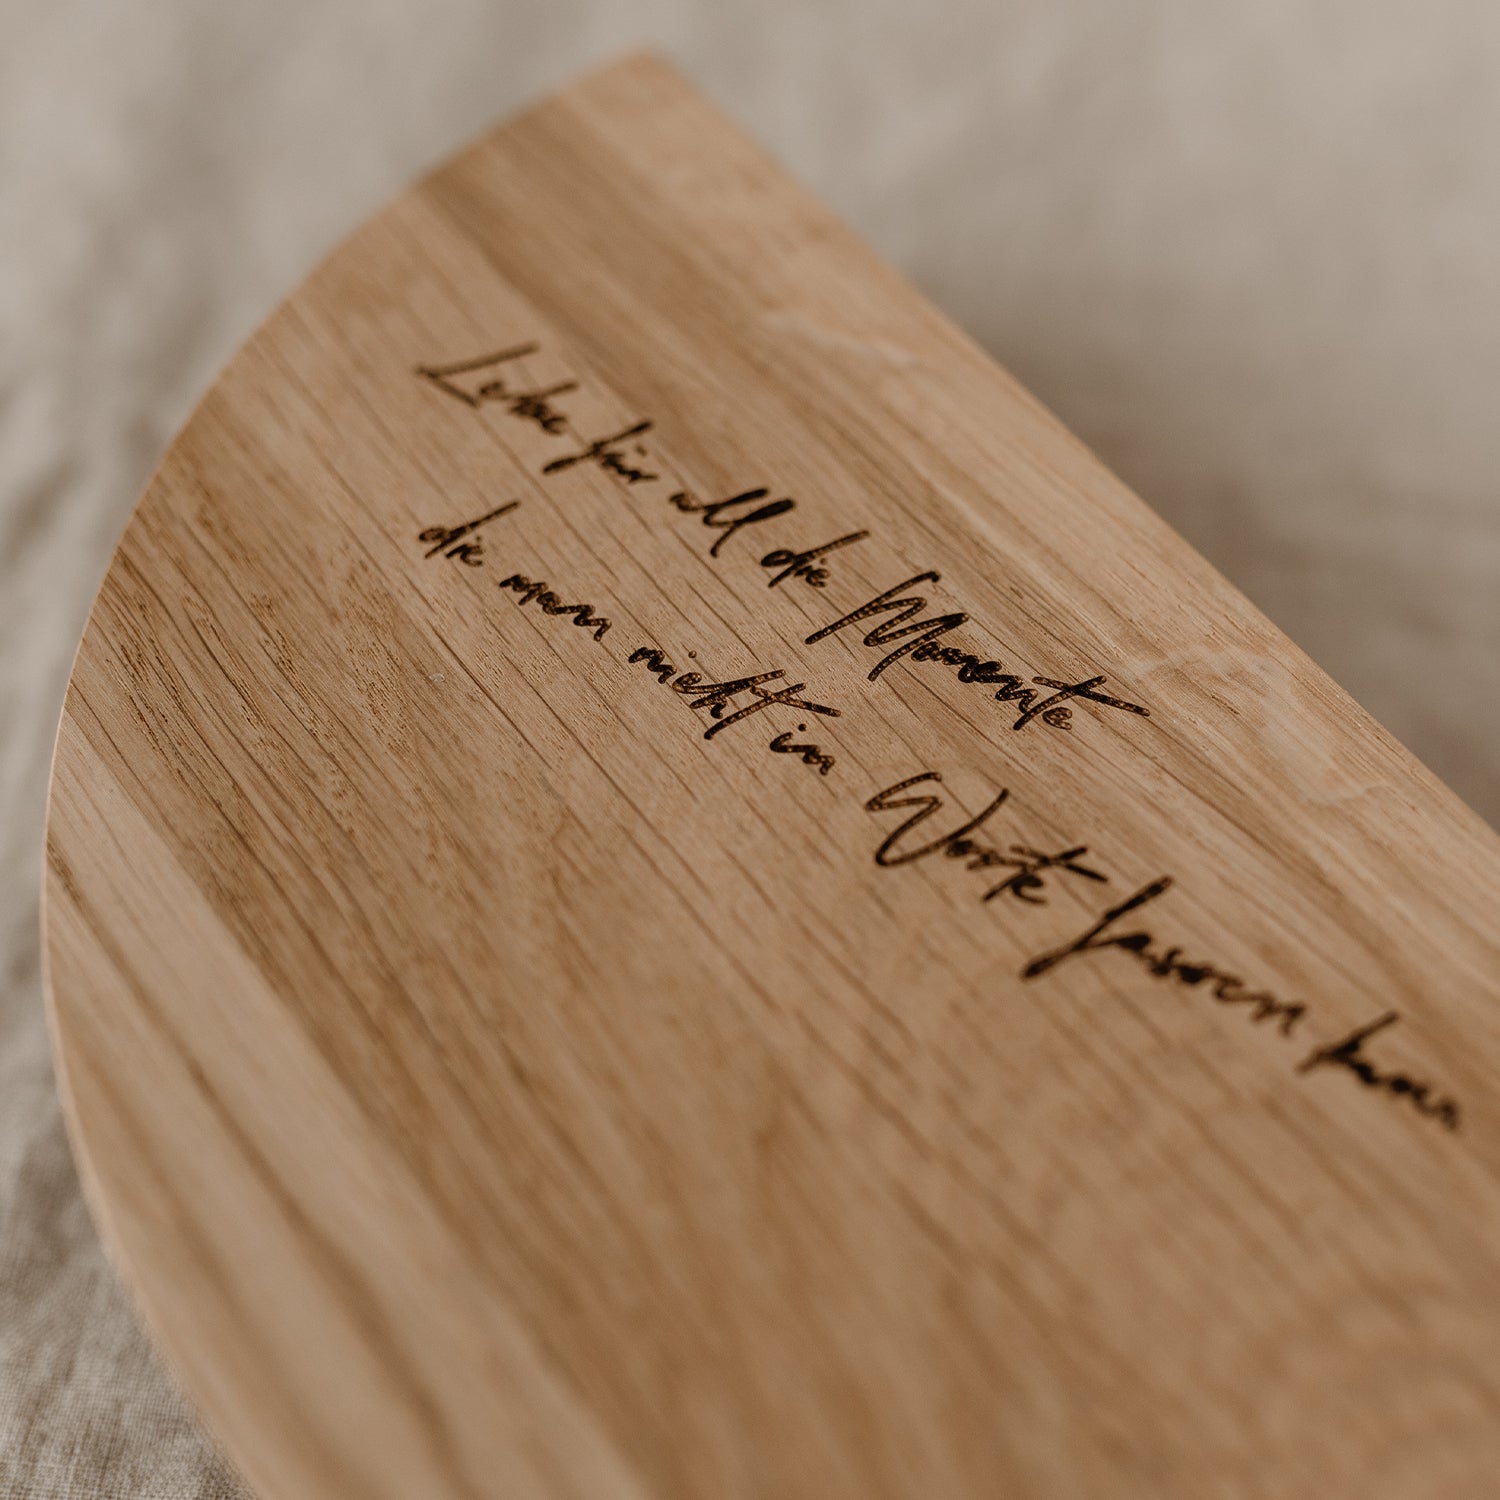 Lebe für all die Momente
die man nicht in Worte fassen kann